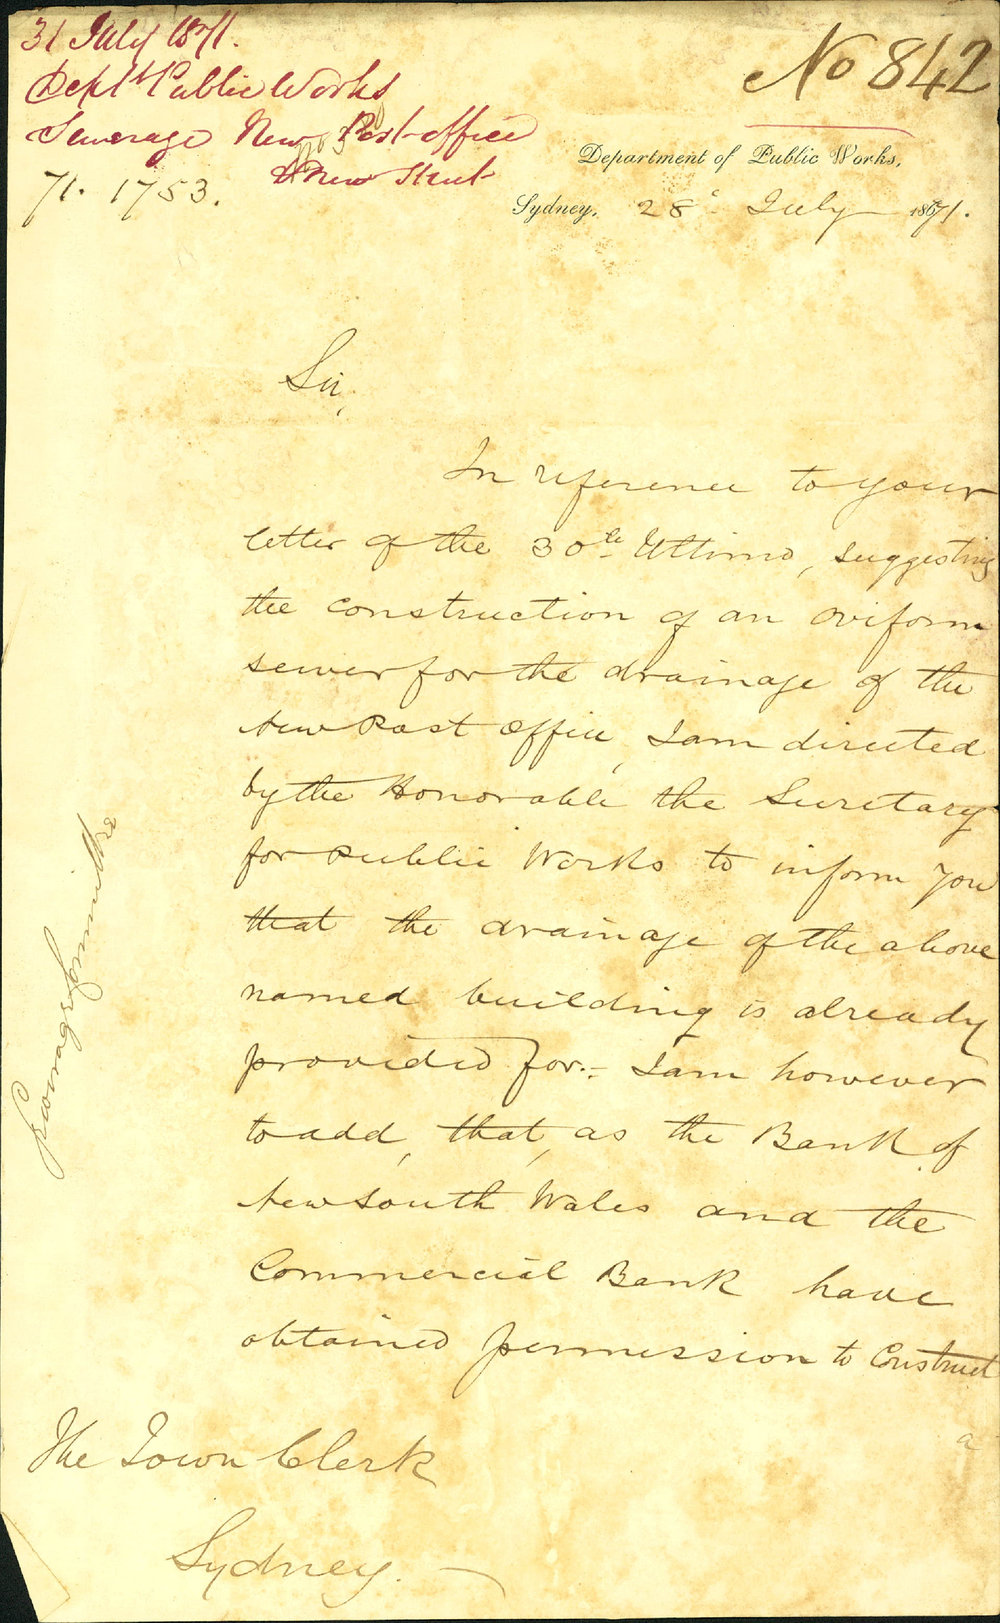 31 July 1871.
Dept Public Works
Sewerage New Post-office
& New Street
71. 1753.
No 842
Department of Public Works,
Sydney, 28 July 1871.
Sir,
In reference to your
letter of the 30th Ultimo, suggesting
the construction of an oviform
sewer for the drainage of the
New Post Office, I am directed
by the Honorable the Secretary
for Public Works to inform you
that the drainage of the above
named building is already
provided for.- I am however
to add, that, as the Bank of
New South Wales and the
Commercial Bank have
obtained permission to construct
a
The Town Clerk
Sydney.
Committee